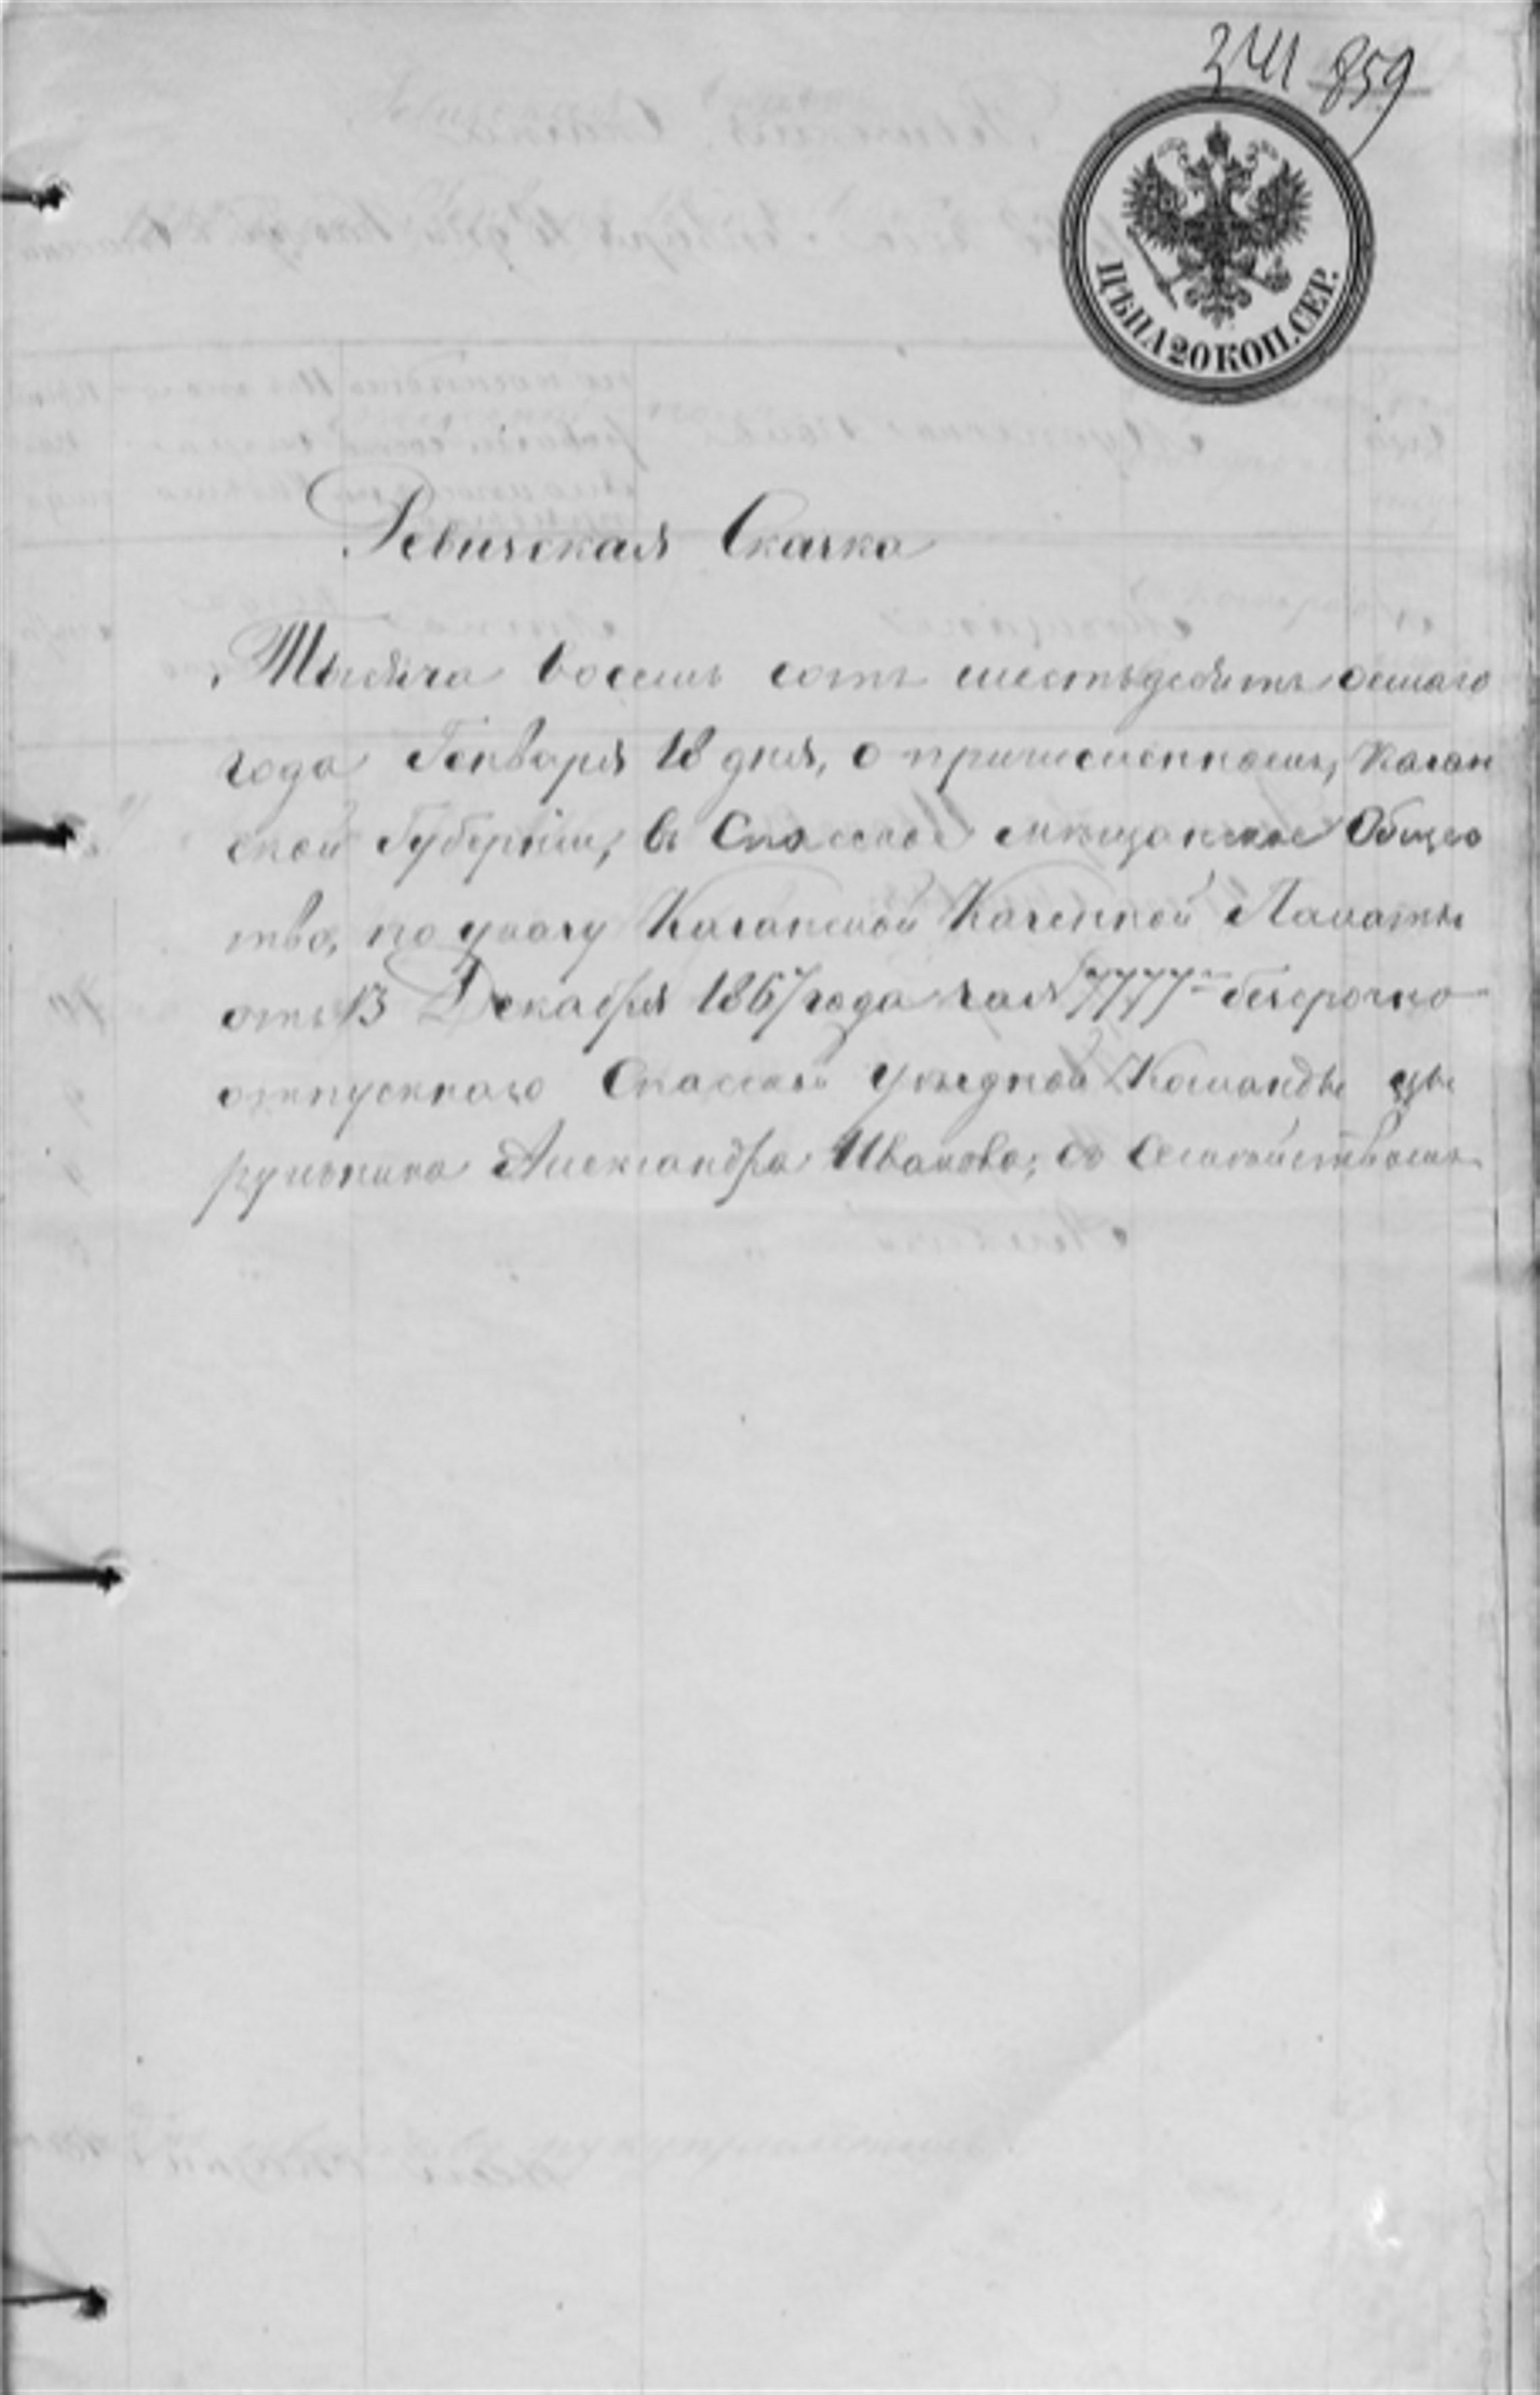 341 859
ЦѢНА 20 КОП. СЕР.
Ревизская Сказка
Тысяча восемь сотъ шестьдесятъ осмаго
года Генваря 18 дня, о причисленномъ, Казан
ской Губерніи, въ Спасское мѣщанское Общес
тво, по указу Казанской Казенной Палаты
отъ 13 Декабря 1867 года за № 7777 безсрочно
отпускнаго Спасской уѣздной Команды цы
рульника Александра Иванова, съ Семействомъ